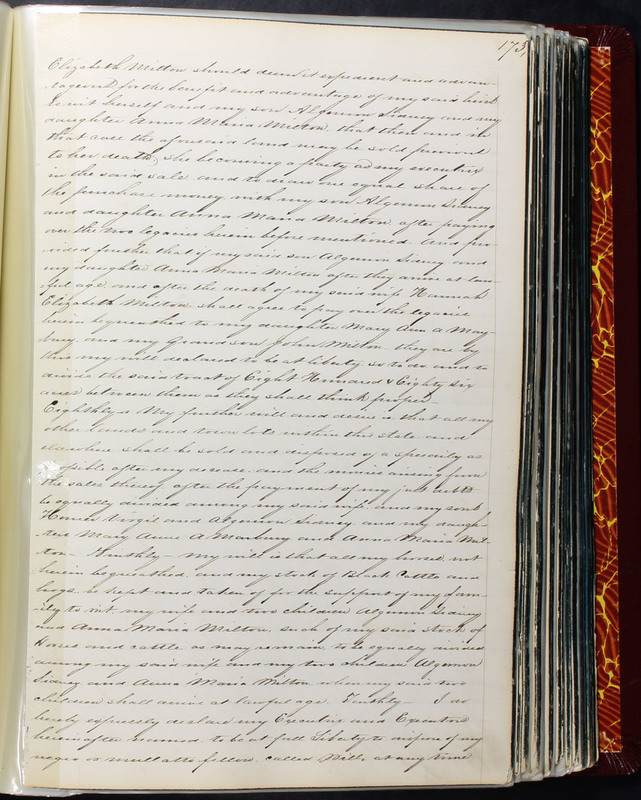 175,
Elizabeth Milton should deem it expedient and advan
tageous for the benefit and advantage of my said heirs
to wit herself and my son Algernon Sidney and my
daughter Anna Maria Milton, that then and in
that case the aforesaid land may be sold previous
to her death, she becoming a party as my executrix
in the said sale and to draw one equal share of
the purchase money with my son Algernon Sidney
and daughter Anna Maria Milton after paying
over the two legacies herein before mentioned. And pro-
vided further that if my said son Algernon Sidney and
my daughter Anna Maria Milton after they arrive at law-
ful age and after the death of my said wife Hannah
Elizabeth Milton shall agree to pay over the legacies
herein bequeathed to my daughter Mary Ann A May-
bury and my Grandson John Milton they are by
this my will declared to be at liberty so to do and to
divide the said tract of Eight Hundred & Eighty six
acres between them as they shall think proper
Eighthly My further will and desire is that all my
other lands and town lots within the State and
elsewhere shall be sold and disposed of as speedily as
possible after my decease and the monies arising from
the sales thereof after the payment of my just debts
be equally divided among my said wife and my sons
Homer Virgil and Algernon Sidney and my daugh-
ters Mary Ann A Maybury and Anna Maria Mil-
ton Ninthly My will is that all my horses not
herein bequeathed and my stock of Black Cattle and
hogs be kept and taken of for the support of my fam-
ily to wit my wife and two children Algernon Sidney
and Anna Maria Milton, such of my said stock of
Horses and cattle as may remain to be equally divided
among my said wife and my two children Algernon
Sidney and Anna Maria Milton when my said two
children shall arrive at lawful age Tenthly I do
hereby expressly declare my Executrix and Executors
herein after named to be at full Liberty to dispose of my
negro or mullatto fellow called Bill, at any time